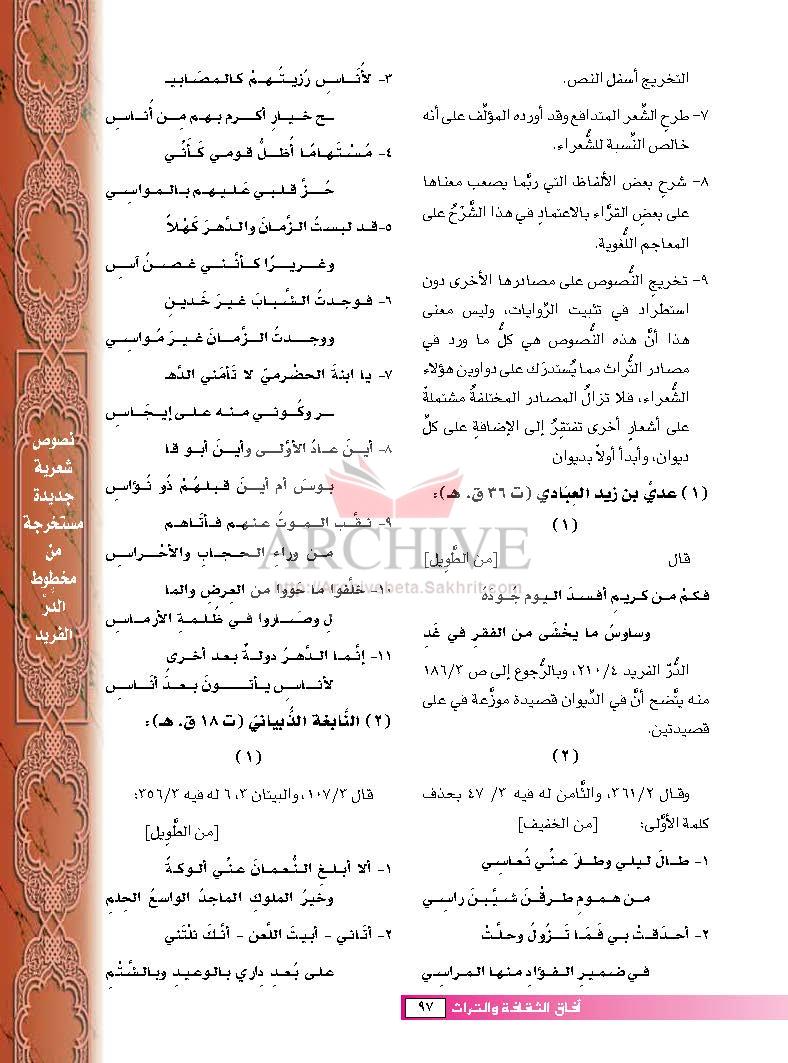 التخريج أسفل النص.
٧- طرح الشِّعر المتدافع وقد أورده المؤلِّف على أنه
خالص النِّسبة للشُّعراء.
٨- شرح بعض الألفاظ التي ربَّما يصعب معناها
على بعض القرَّاء بالاعتماد في هذا الشَّرْحُ على
المعاجم اللُّغوية.
٩- تخريج النُّصوص على مصادرها الأخرى دون
استطراد في تثبيت الرِّوايات، وليس معنى
هذا أنَّ هذه النُّصوص هي كلُّ ما ورد في
مصادر التُّراث مما يُستدرَك على دواوين هؤلاء
الشُّعراء، فلا تزالُ المصادر المختلفةُ مشتملةً
على أشعارٍ أخرى تفتقِرُ إلى الإضافةِ على كلِّ
ديوان، وأبدأ أولاً بديوان
(١) عديّ بن زيد العبّادي (ت ٣٦ ق. هـ):
(١)
قال [من الطَّويل]
فكمْ من كريمٍ أفسدَ اليوم جُودَهُ
وساوسُ ما يخْشَى من الفقرِ في غَدِ
الدُّرّ الفريد ٢١٠/٤، وبالرُّجوع إلى ص ١٨٦/٣
منه يتَّضح أنَّ في الدِّيوان قصيدة موزَّعة في على
قصيدتين.
(٢)
وقال ٣٦١/٢، والثَّامن له فيه ٣/ ٤٧ بحذف
كلمة الأوَّلى: [من الخفيف]
١- طـالَ ليلي وطـارَ عنِّي نُعاسِي
مـن همـومٍ طـرقْـنَ شـيَّبـنَ راسِـي
٢- أحدَقتْ بي فَمَا تَـزُولُ وحلَّتْ
في ضميرِ الـفـؤادِ منهـا المراسِي
٣- لأُنَـاسٍ رُزِيتُـهـمْ كـالـمصَابيـ
ـحِ خيـارٍ أكـرم بهـم مِـن أُنـاسِ
٤- مُسْتَهامًا أُظـلُّ قومـي كَـأنِّي
حُـزَّ قلبـي عَليهـم بـالمواسِـي
٥-قد لبستُ الزَّمانَ والدَّهرَ كَهْلاً
وغـريـرًا كـأنَّـنـي غصـنُ آسِ
٦- فـوجدتُ الشَّبـابَ غيـرَ خَدينٍ
ووجـدتُ الزَّمـانَ غيـرَ مُواسِـي
٧- يا ابنةَ الحضْرميّ لا تَأمَني الدَّهـ
ـر وكُـوني منـه علـى إيجَـاسِ
٨- أيـنَ عـادُ الأوَّلـى وأيـنَ أبـو قا
بـوسَ أم أيـنَ قبلهُمْ ذو نُـؤاسِ
٩- نـقَّـب الـموتُ عنـهم فـأتَاهـم
مـن وراءِ الـحجـابِ والأحْـراسِ
١٠- خلَّفوا ما حَوَوا من العِرضِ والما
لِ وصَـاروا في ظُـلمةِ الأرماسِ
١١- إنَّـمـا الـدَّهـرُ دولـةٌ بعد أخرى
لأنـاسٍ يـأتــونَ بعـدَ أنَـاسِ
(٢) النَّابغة الذُّبيانيّ (ت ١٨ ق. هـ):
(١)
قال ١٠٧/٣، والبيتان ٦،٣ له فيه ٣٥٦/٣:
[من الطَّويل]
١- ألا أبـلـغِ الـنُّعمانَ عنِّي ألـوكـةً
وخيرُ الملوكِ الماجدُ الواسعُ الحِلمِ
٢- أتَاني - أبيتَ اللَّعن - أنَّكَ نلْتَني
على بُعدِ دارِي بالوعيدِ وبالشَّتْمِ
نصوص
شعرية
جديدة
مستخرجة
من
مخطوط
الدر
الفريد
ARCHIVE
http://Archivebeta.Sakhrit.com
آفاق الثقافة والتراث ٩٧